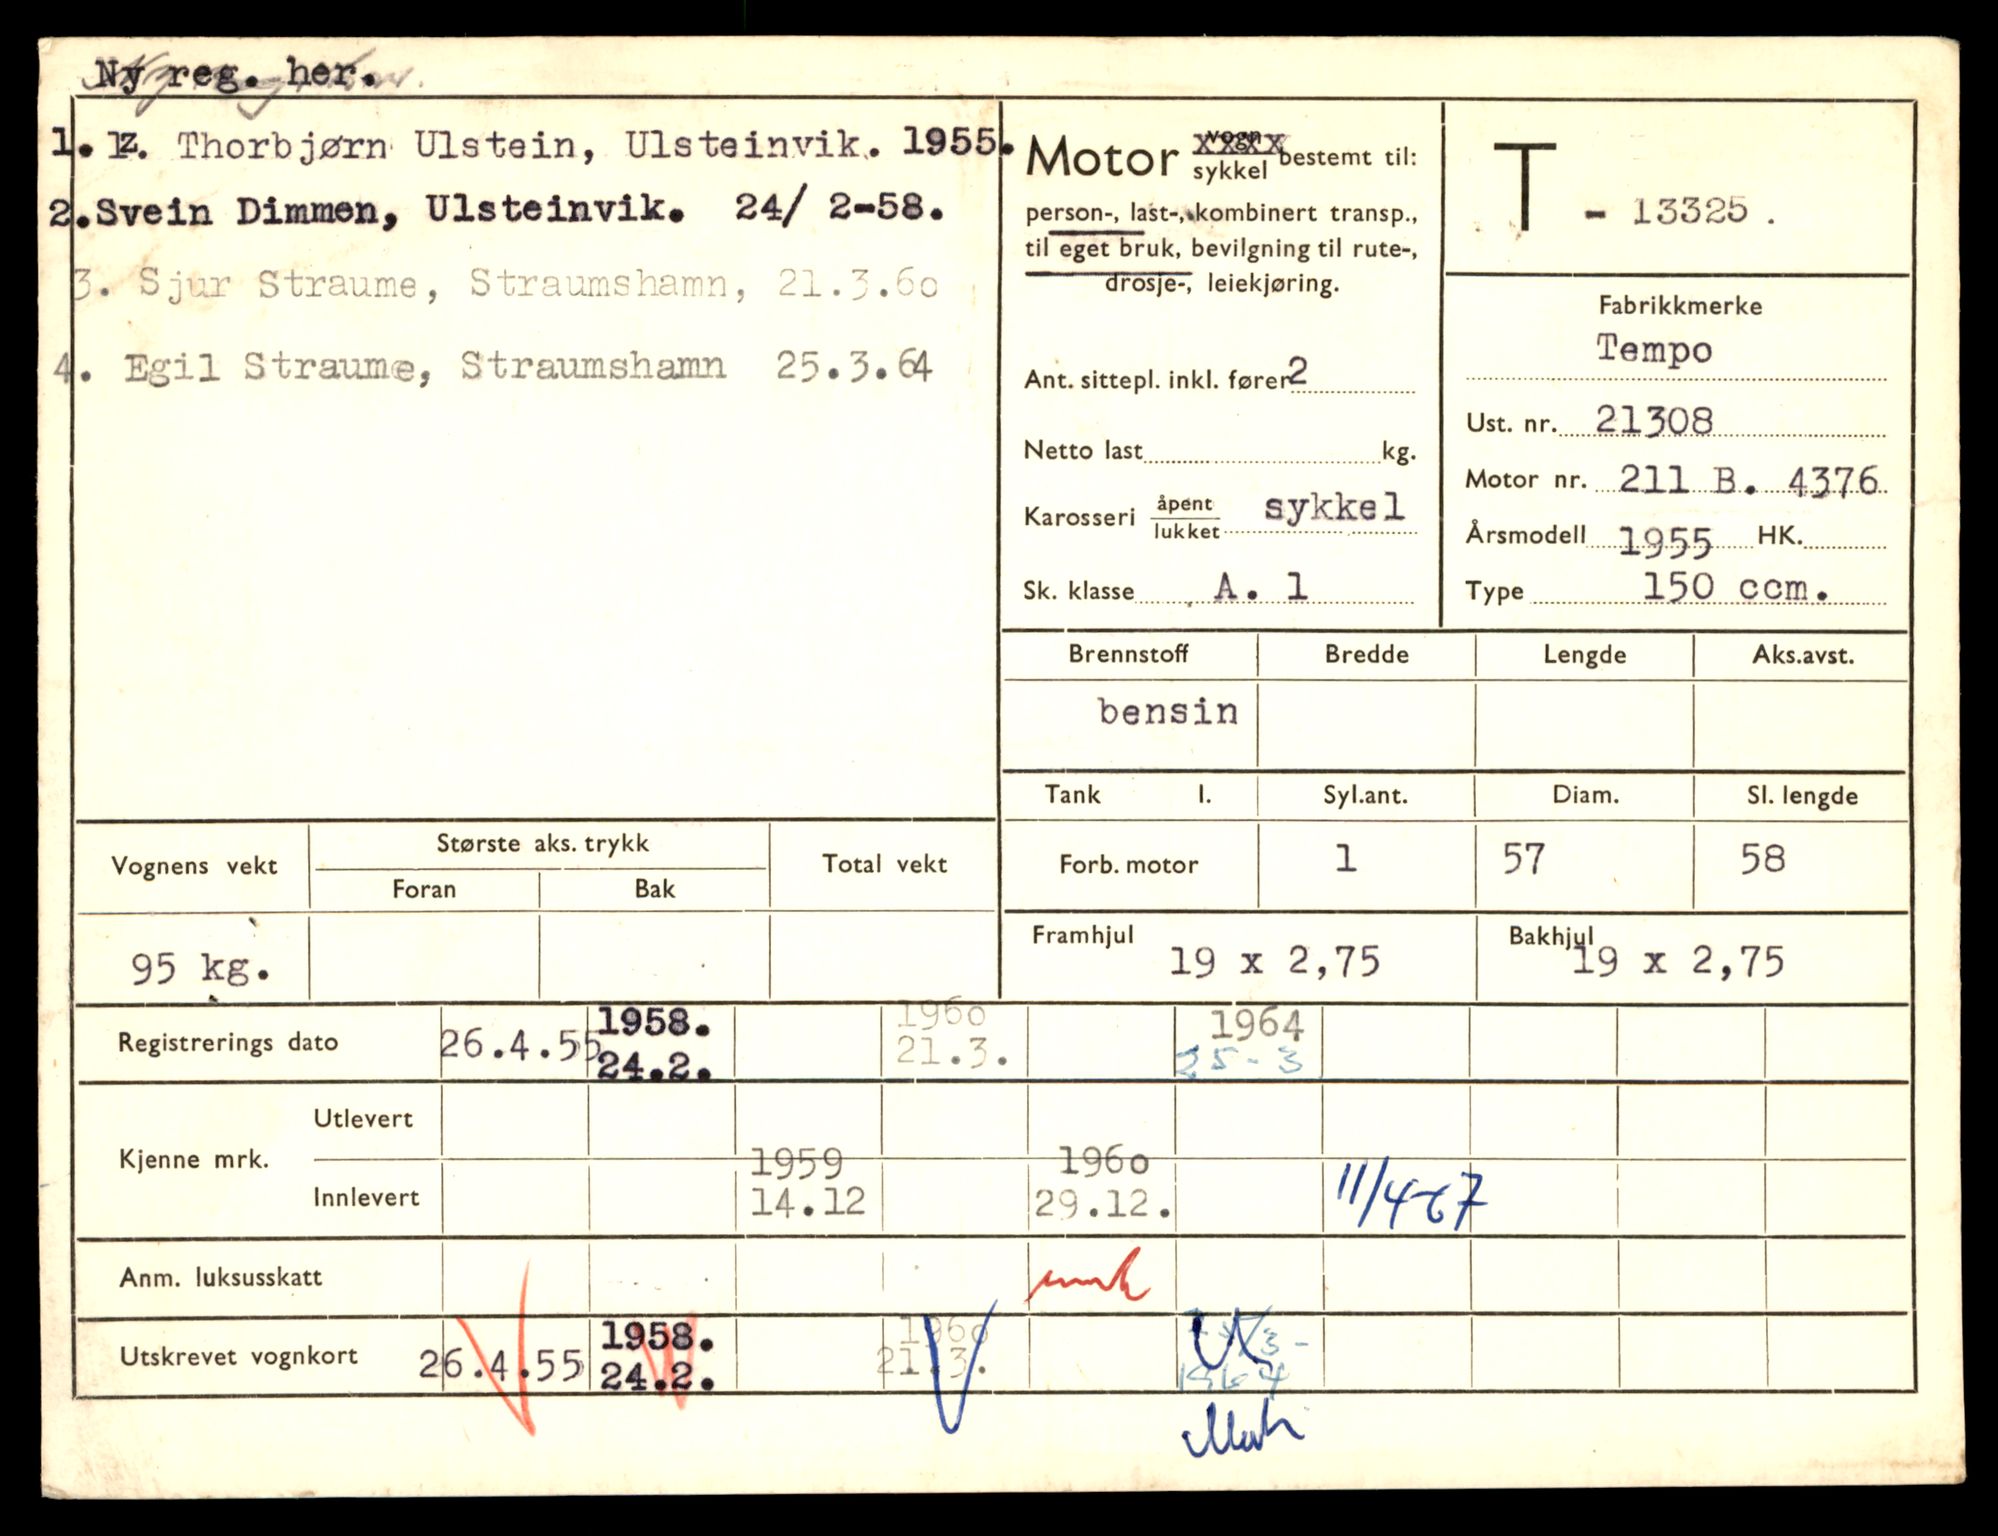 Ny reg. her.
1. Thorbjørn Ulstein, Ulsteinvik. 1955.
2. Svein Dimmen, Ulsteinvik. 24/ 2-58.
3. Sjur Straume, Straumshamn, 21.3.60
4. Egil Straume, Straumshamn 25.3.64
Motor vogn sykkel bestemt til:
person-, last-, kombinert transp.,
til eget bruk, bevilgning til rute-,
drosje-, leiekjøring.
Ant. sittepl. inkl. fører 2
Netto last kg.
Karosseri åpent lukket sykkel
Sk. klasse A. 1
T - 13325.
Fabrikkmerke
Tempo
Ust. nr. 21308
Motor nr. 211 B. 4376
Årsmodell 1955 HK.
Type 150 ccm.
Brennstoff Bredde Lengde Aks.avst.
bensin
Tank l. Syl.ant. Diam. Sl. lengde
Forb. motor 1 57 58
Framhjul 19 x 2,75 Bakhjul 19 x 2,75
Vognens vekt Største aks. trykk Total vekt
Foran Bak
95 kg.
Registrerings dato 26.4.55 1958. 24.2. 1960 21.3. 1964 25-3
Kjenne mrk. Utlevert
Innlevert 1959 14.12 1960 29.12. 11/4-67
Anm. luksusskatt
Utskrevet vognkort 26.4.55 1958. 24.2. 1960 21.3. 1964